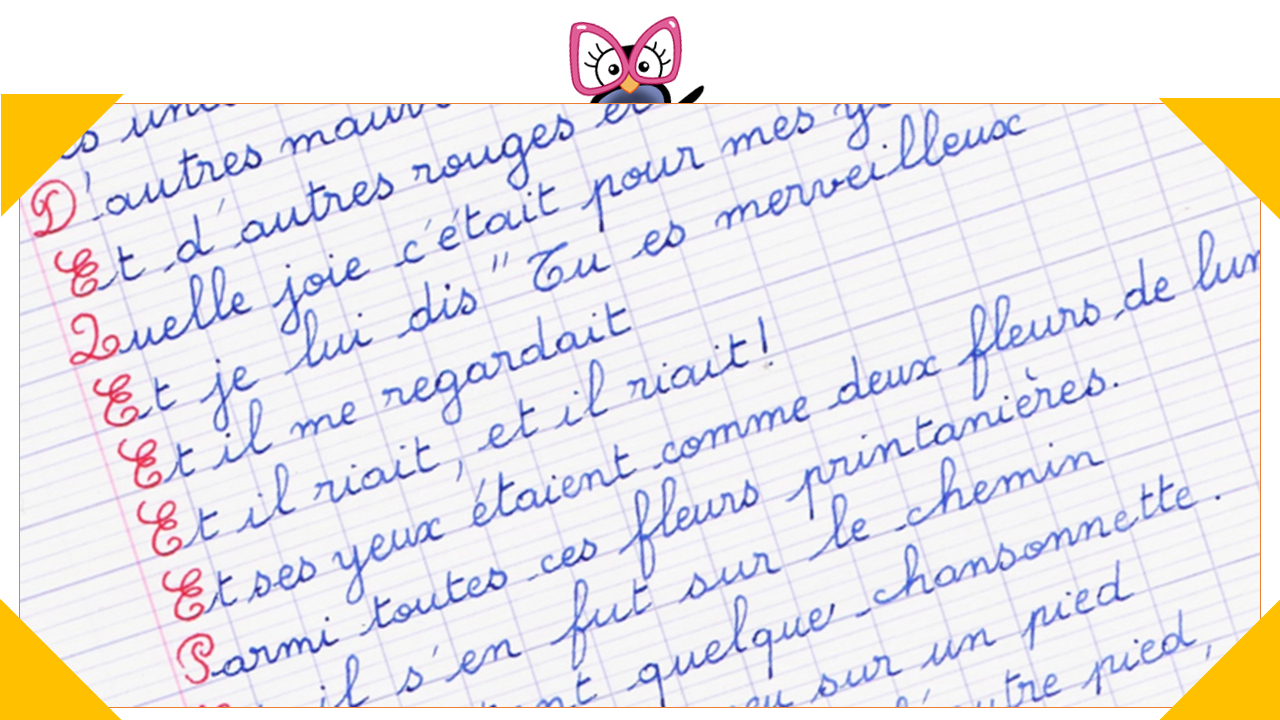 D'autres
Et d'autres rouges et
Quelle joie c'était pour mes
Et je lui dis "Tu es merveilleux
Et il me regardait
Et il riait, et il riait!
Et ses yeux étaient comme deux fleurs de
Parmi toutes ces fleurs printanières.
il s'en fut sur le chemin
quelque chansonnette.
sur un pied
pied,